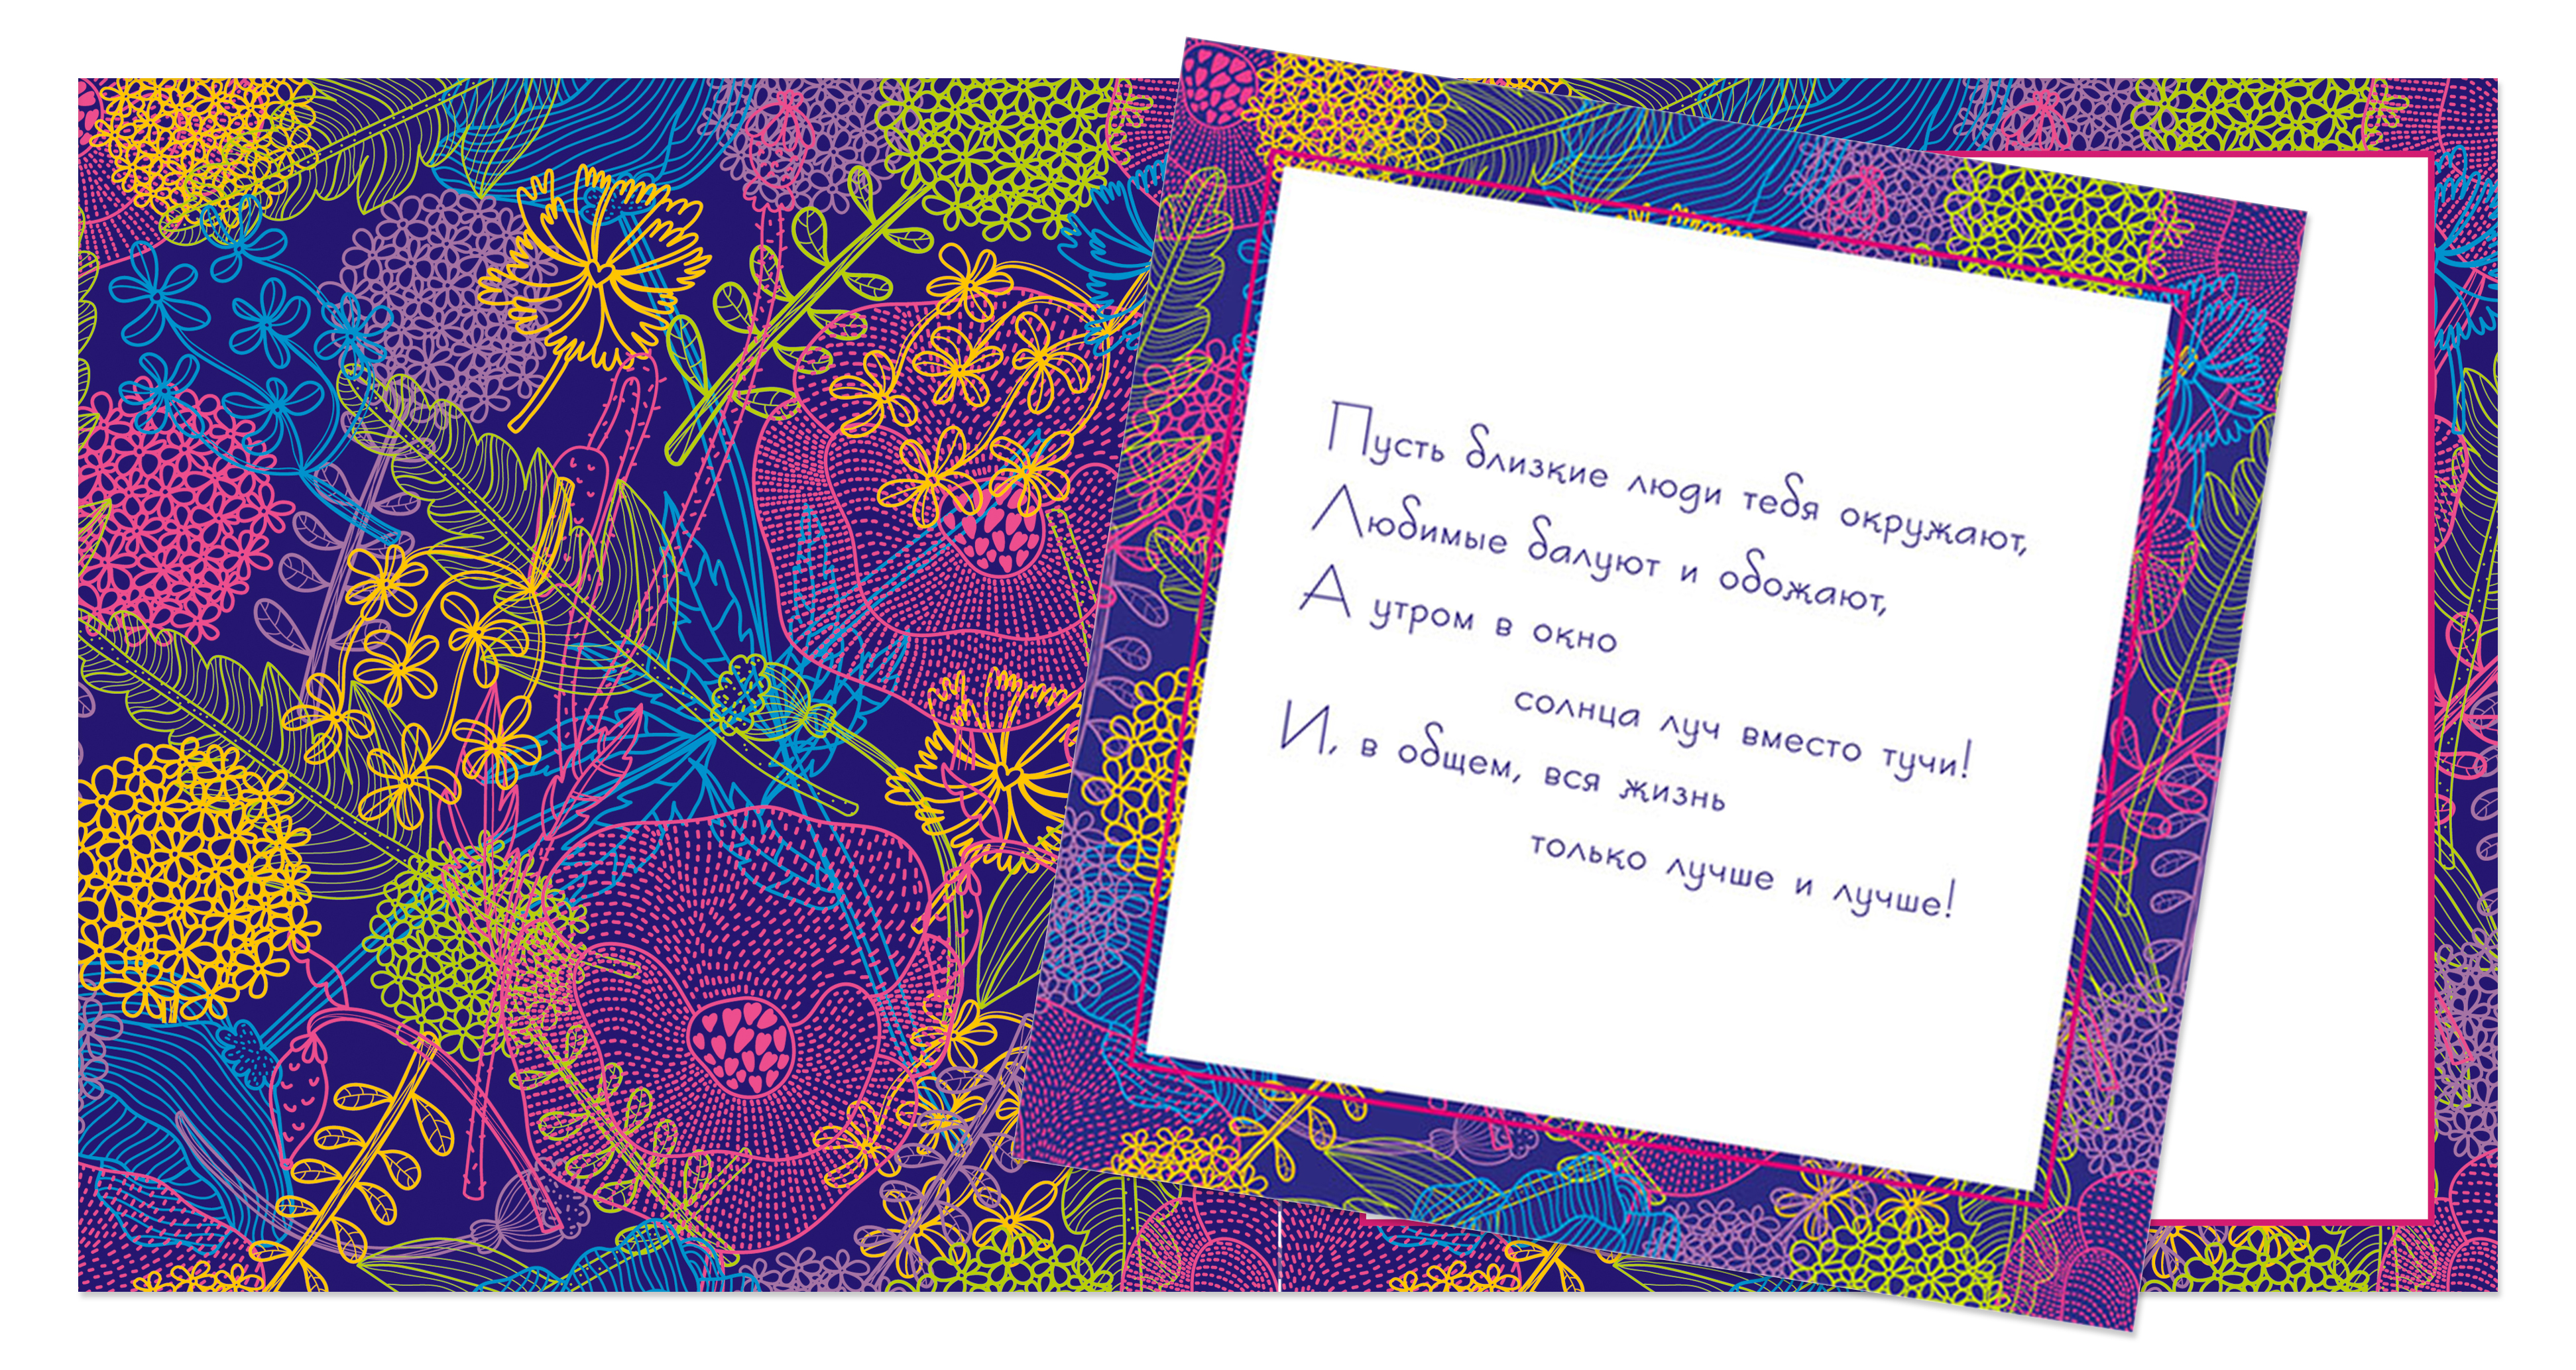 Пусть близкие люди тебя окружают,
Любимые балуют и обожают,
А утром в окно
солнца луч вместо тучи!
И, в общем, вся жизнь
только лучше и лучше!